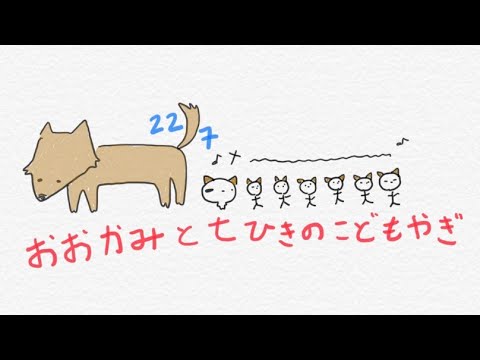 22
7
おおかみと七ひきのこどもやぎ